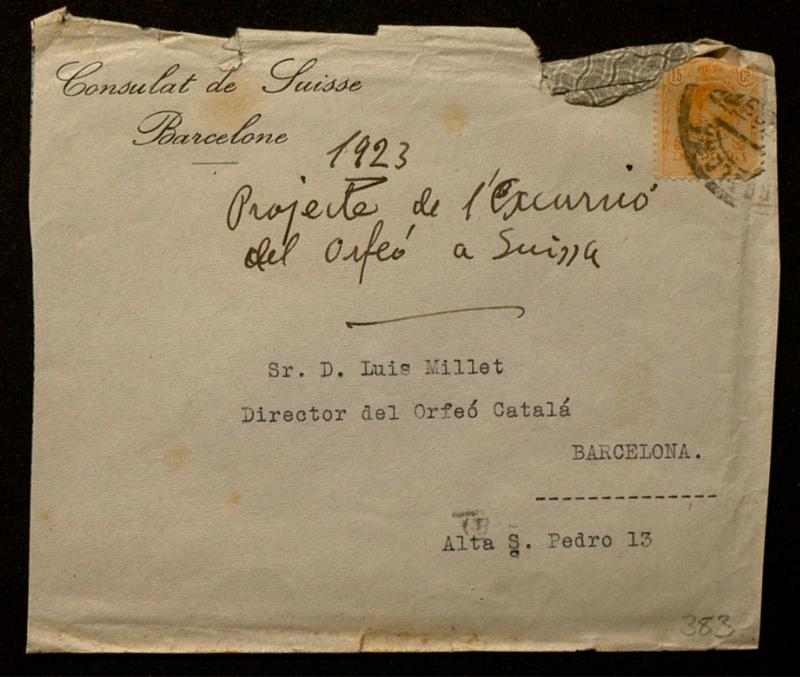 Consulat de Suisse
Barcelone
15 Cs
1923
Projecte de l'Excursió
del Orfeó a Suissa
Sr. D. Luis Millet
Director del Orfeó Catalá
BARCELONA.
Alta S. Pedro 13
383